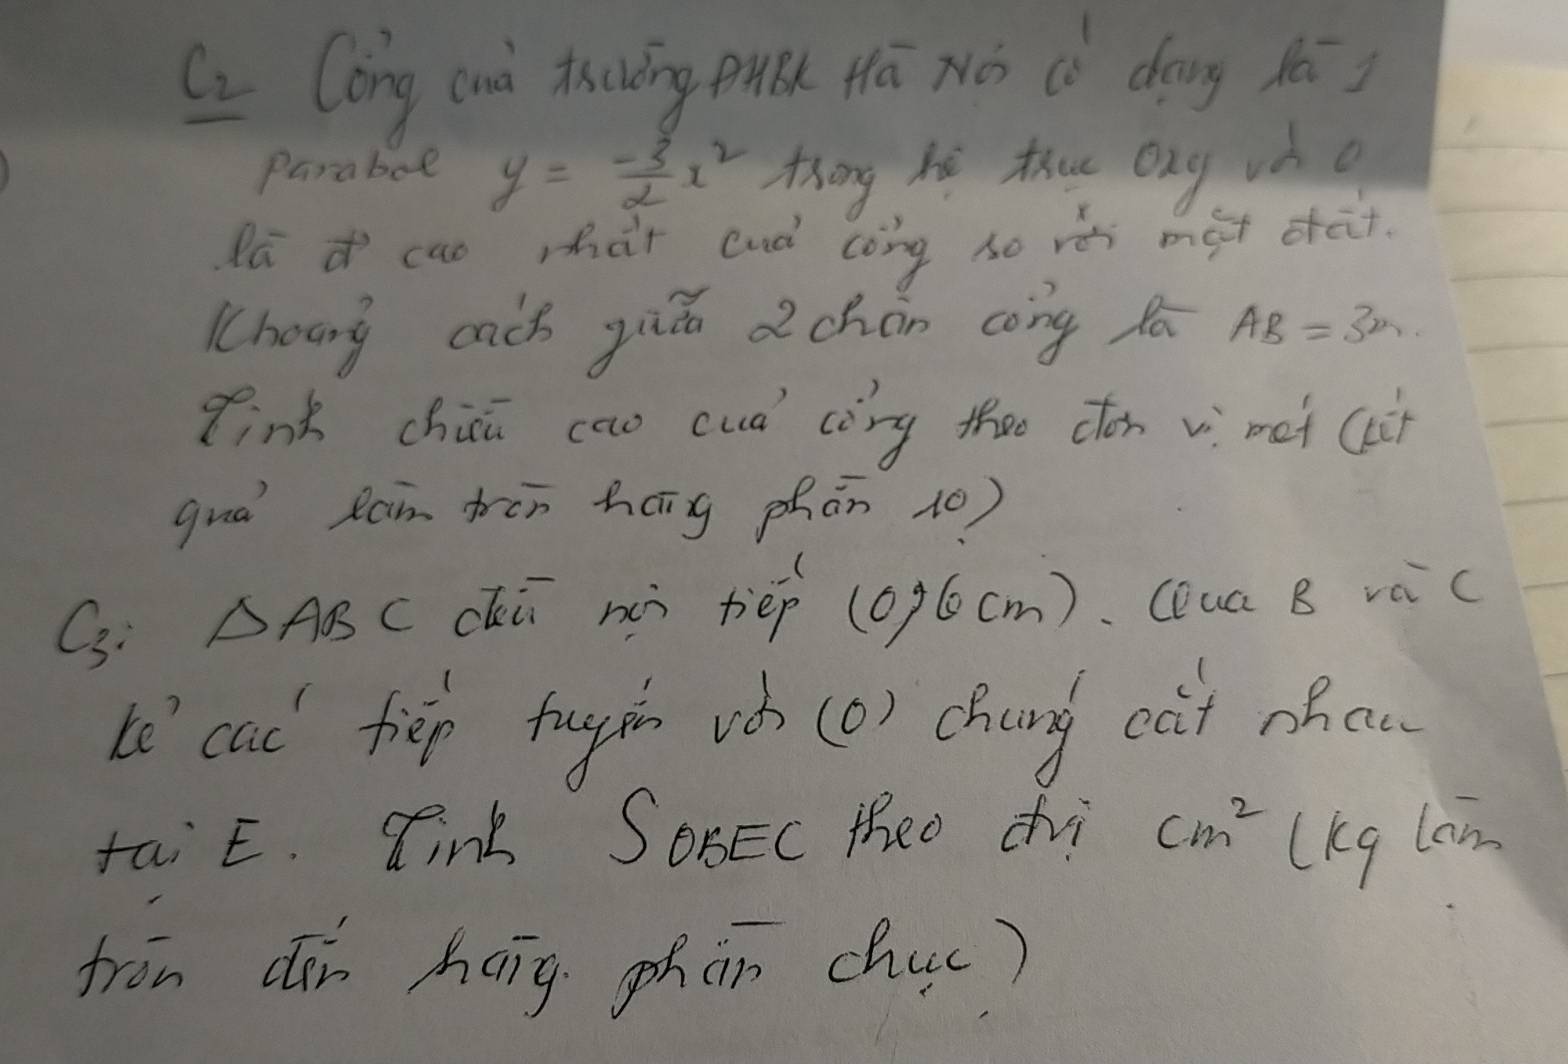 C2 Cổng của trường ĐHBK Hà Nội có dạng là 1
Parabol y = -3/2 x² trong hệ trục Oxy với O
là đ cao nhất của cổng so với mặt đất.
Khoảng cách giữa 2 chân cổng là AB = 3m.
Tính chiều cao của cổng theo đơn vị mét (kết
quả làm tròn hàng phần 10)
C3: ΔABC đều nội tiếp (O; 6cm). Qua B và C
kẻ các tiếp tuyến với (O) chúng cắt nhau
tại E. Tính SOBEC theo đvị cm² (kq làm
tròn đến hàng phần chục)